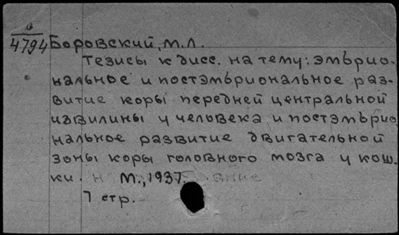 а
4794 Боровский, М.Л.
Тезисы к дисс. на тему: эмбрио-
нальное и постэмбриональное раз-
витие коры передней центральной
извилины у человека и постэмбрио
нальное развитие двигательной
зоны коры головного мозга у кош-
ки. М., 1937.
7 стр.